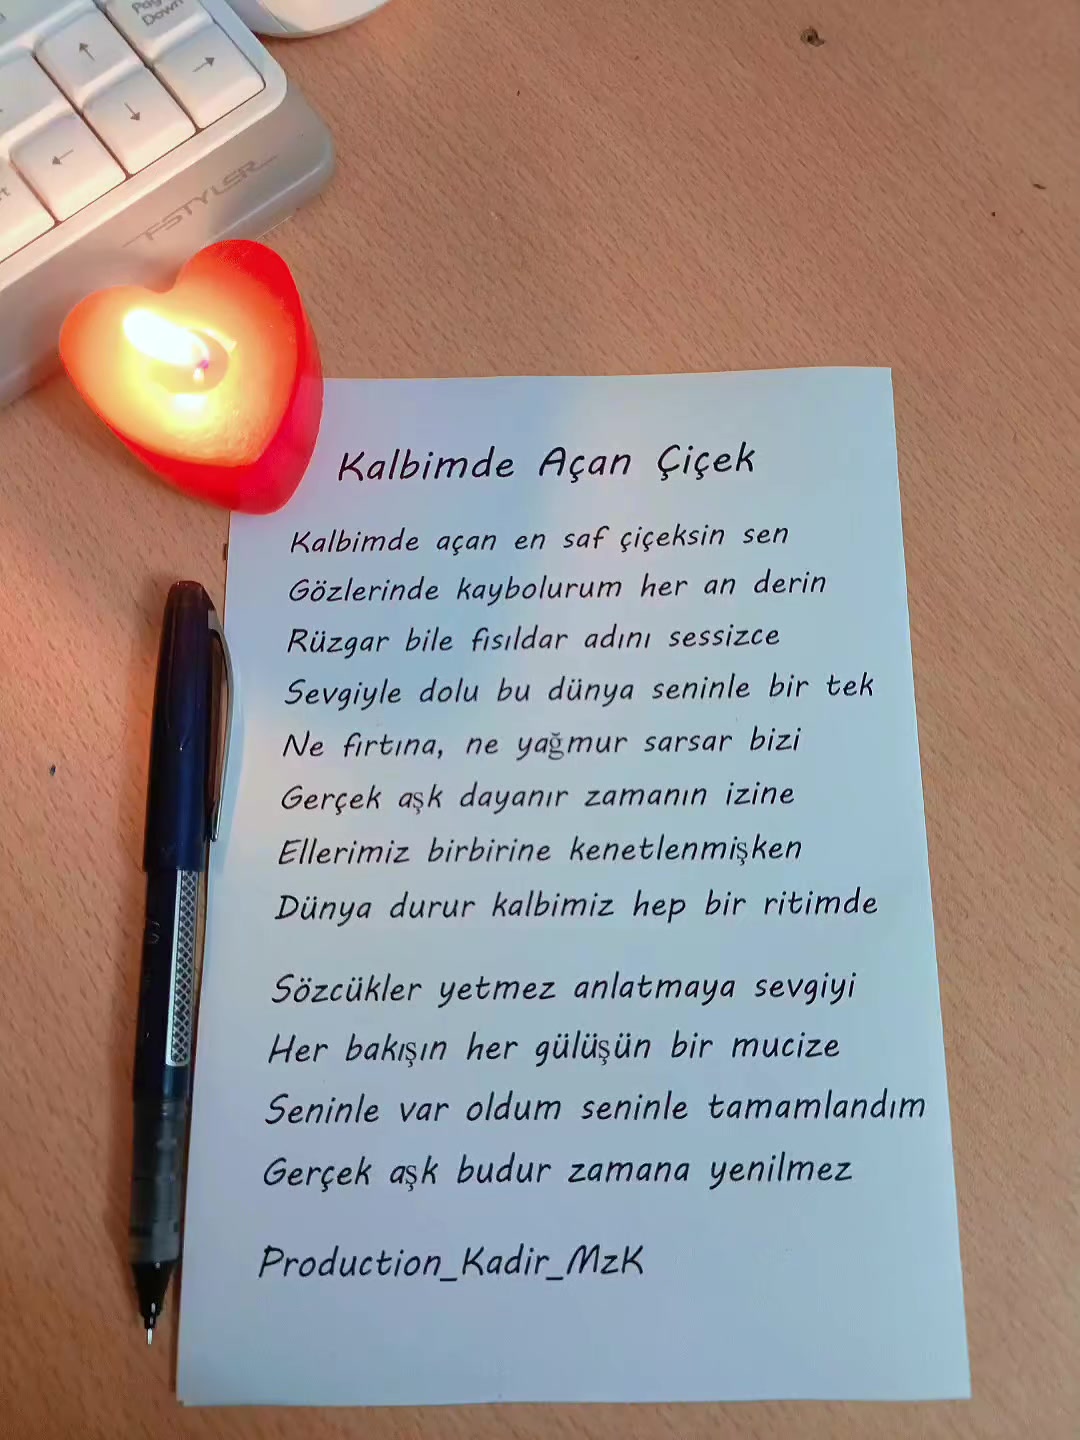 Page
Down
↑
→
↓
←
FSTYLER
Kalbimde Açan Çiçek
Kalbimde açan en saf çiçeksin sen
Gözlerinde kaybolurum her an derin
Rüzgar bile fısıldar adını sessizce
Sevgiyle dolu bu dünya seninle bir tek
Ne fırtına, ne yağmur sarsar bizi
Gerçek aşk dayanır zamanın izine
Ellerimiz birbirine kenetlenmişken
Dünya durur kalbimiz hep bir ritimde
Sözcükler yetmez anlatmaya sevgiyi
Her bakışın her gülüşün bir mucize
Seninle var oldum seninle tamamlandım
Gerçek aşk budur zamana yenilmez
Production_Kadir_MzK